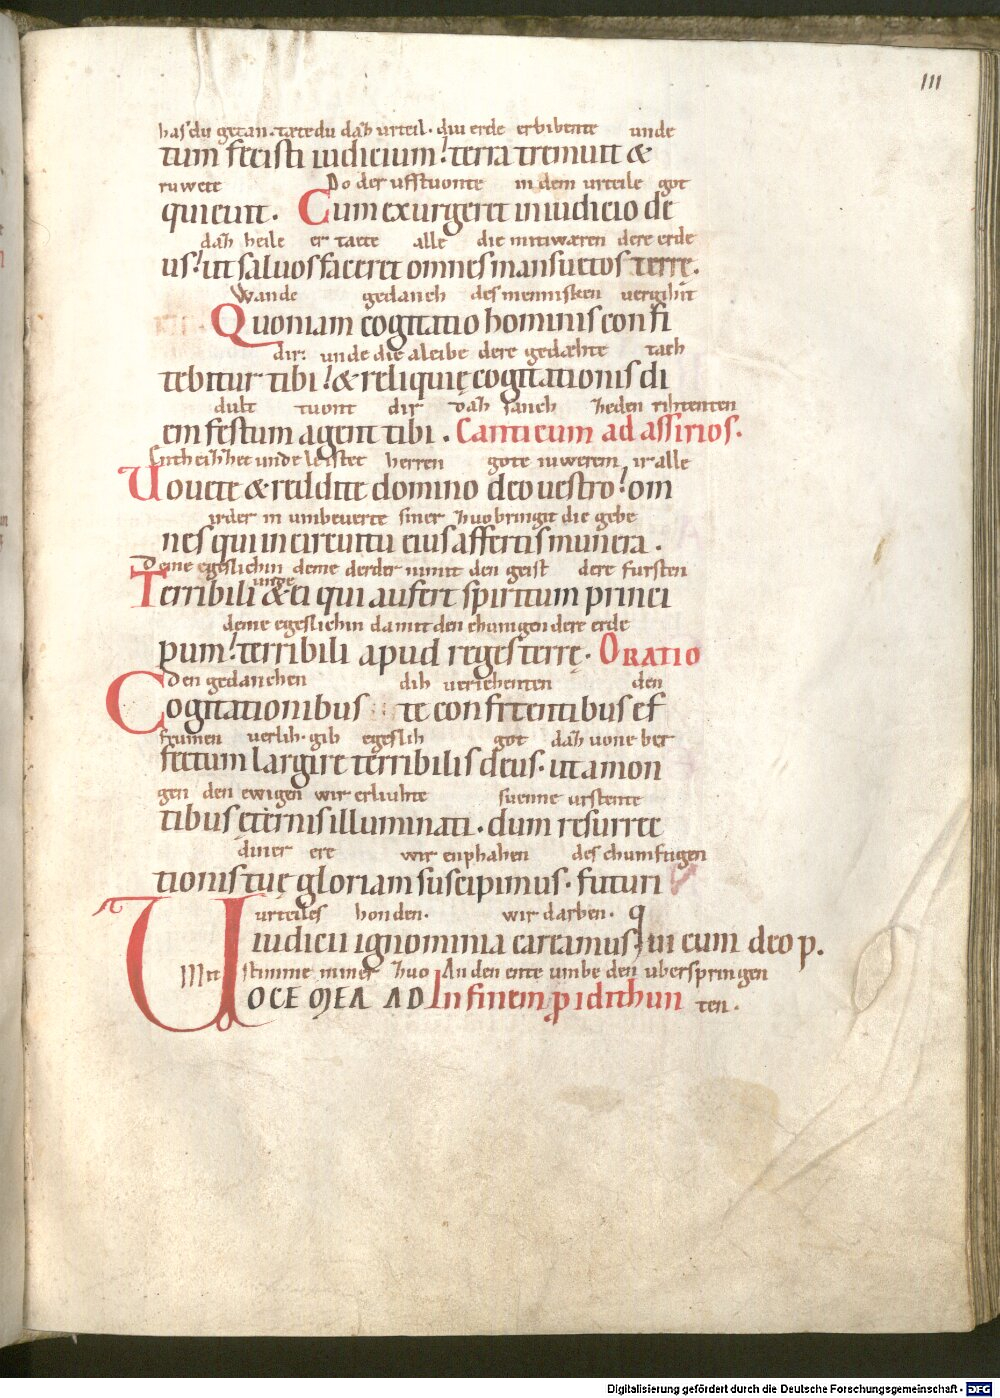 111
hasdu getan. tætedu daz urteil. diu erde erbibente unde
tum fecisti iudicium. terra tremuit &
ruwete Do der ufstuonte in dem urteile got
quieuit. Cum exurgeret in iudicio de
daz heile er taete alle die mitiwæren dere erde
us. ut saluos faceret omnes mansuetos terrę.
Wande gedanch des mennisken vergihit
Quoniam cogitatio hominis confi
dir: unde die aleibe dere gedæhte tach
tebitur tibi. & reliquię cogitationis di
dult tuont dir daz sanch zeden rihtenten
em festum agent tibi. Canticum ad assirios.
Entheizzet unde leistet herren gote iuwerem, ir alle
Uouete & reddite domino deo uestro. om
irder in umbeuerte siner zuo bringit die gebe
nes qui in circuitu eius affertis munera.
Deme egeslichin deme derder nimit den geist dere fursten
unde
Terribili & ei qui aufert spiritum princi
deme egeslichin damit den chunigen dere erde
pum. terribili apud reges terrę. ORATIO
Den gedanchen dih veriehenten den
Cogitationibus te confitentibus ef
frumen verlih. gib egeslih got daz uone ber
fectum largire terribilis deus. ut a mon
gen den ewigen wir erliuhte suenne urstente
tibus ęternis illuminati. dum resurrec
diner ere wir enphahen des chumftigen
tionis tuę gloriam suscipimus. futuri
urteiles honden. wir darben. q
iudicii ignominia careamus. in eum deo p.
Mit stimme miner zuo An den ente umbe den uberspringen
UOCE MEA AD In finem p idithun ten.
Digitalisierung gefördert durch die Deutsche Forschungsgemeinschaft - DFG